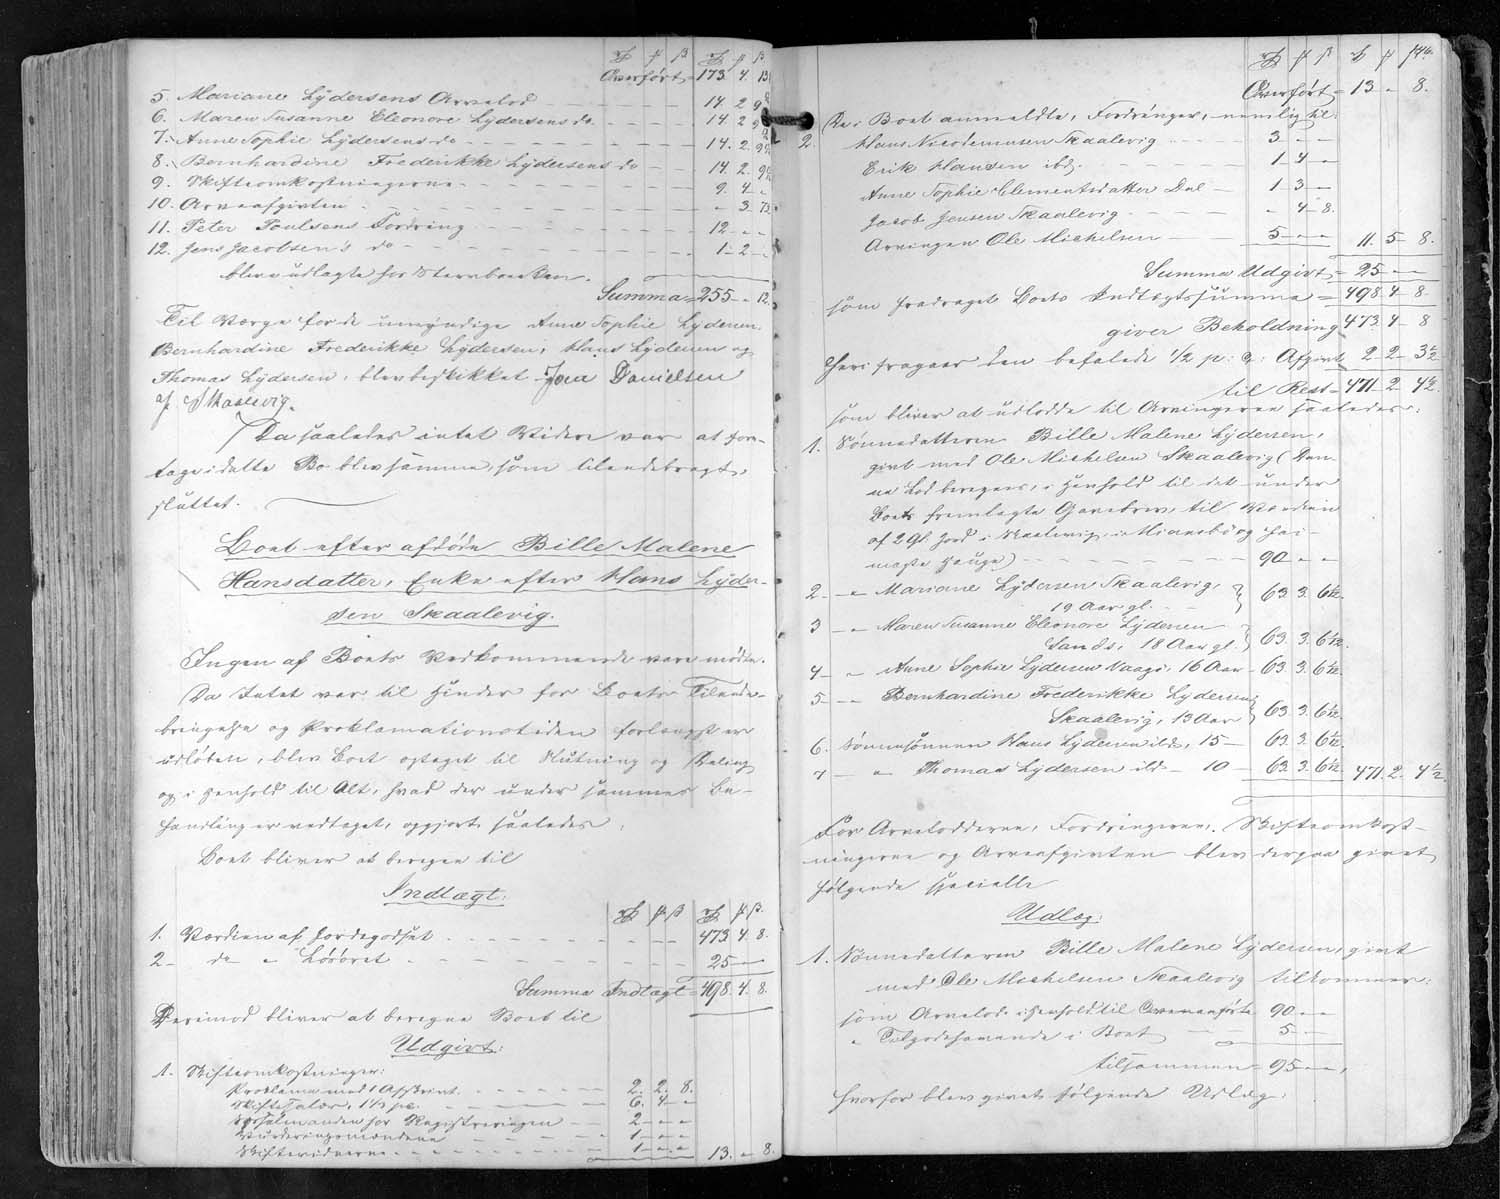 Overført = 173. 4. 13
5. Mariane Lydersens Arvelod 14. 2 9
6. Maren Susanne Eleonore Lydersens do 14. 2 9
7. Anne Sophie Lydersens do 14. 2. 9
8. Bernhardine Frederikke Lydersens do 14. 2. 9
9. Skifteomkostningerne 9. 4 "
10. Arveafgivten " 3. 73
11. Peter Poulsens Fordring 12 " "
12. Jens Jacobsen's do 1 - 2 -
blev udlagte for Stervboenken.
Summa = 255 - " 12
Til Værge for de umyndige Anne Sophie Lydersen
Bernhardine Frederikke Lydersen, Hans Lydersen og
Thomas Lydersen, blev beskikket Jens Danielsen
Skaalevig.
Da saaledes intet Videre var at fore-
tage i dette Bo blev samme, som tilendebragt,
sluttet.
Boet efter afdøde Bille Malene
Hansdatter, Enke efter Hans Lyder-
sen Skaalevig.
Ingen af Boets Vedkommende vare mødte.
Da Intet var til Hinder for Boets Tilende-
bringelse og Proklamationstiden forlængst er
udløben, blev Boet optaget til Slutning og Deling
og i Henhold til Alt, hvad der under sammes Be-
handling er vedtaget, opgjort saaledes:
Boet bliver at beregne til
Indtægt:
1. Værdien af Jordegodset 473. 4. 8.
2 - do " Løsøret 25 - -
Summa Indtægt = 498. 4. 8.
Derimod bliver at beregne Boet til
Udgivt:
1. Skifteomkostninger:
Proklama med 1 Afskrivt 2. 2. 8.
Skiftesalær, 1 1/3 pc. 6. 4 "
for Registreringen 2 - " "
Vurderingsmændene 1 - " "
Skiftevidnerne 1 - " " 13. " 8.
Overført = 13 " 8.
2. De i Boet anmeldte Fordringer, nemlig til:
Hans Nicodemussen Skaalevig 3 " -
Erik Hansen ibd. 1 4 "
Anne Sophie Clementsdatter Dal 1 3 -
Jacob Jensen Skaalevig " 4 - 8.
Arvingen Ole Michelsen 5 " " 11. 5 - 8.
Summa Udgivt = 25 - -
som fradraget Boets Indtægtssumma = 498 4 - 8.
giver Beholdning 473. 4 - 8
Heri fragaaer den befalede 1/2 p: c: Afgivt 2 - 2 - 3 1/2
til Rest = 471 - 2. 4 1/2.
som bliver at udlodde til Arvingerne saaledes:
1. Sønnedatteren Bille Malene Lydersen,
givt med Ole Michelsen Skaalevig (Den-
ne Lod beregnes, i Henhold til det under
Boet fremlagte Gavebrev, til Værdien
af 2 gl. Jord i Skaalevig,
90 " "
2 - " Mariane Lydersen Skaalevig,
19 Aar gl. 63. 3. 6 1/2.
3 - " Maren Susanne Eleonore Lydersen
Sands, 18 Aar gl. 63. 3. 6 1/2.
4 - " Anne Sophie Lydersen Vaage, 16 Aar - 63. 3. 6 1/2.
5 - " Bernhardine Frederikke Lydersen
Skaalevig, 13 Aar 63. 3. 6 1/2.
6. Sønnesønnen Hans Lydersen ibd, 15 - 63. 3. 6 1/2.
7 - " Thomas Lydersen ibd - 10 - 63. 3. 6 1/2. 471. 2. 4 1/2.
For Arvelodderne, Fordringerne, Skifteomkost-
ningerne og Arveafgivten blev derpaa givet
følgende specielle
Udlæg:
1. Sønnedatteren Bille Malene Lydersen, givt
med Ole Michelsen Skaalevig tilkommer:
som Arvelod i Henhold til Ovenanførte 90 - "
" Tilgodehavende i Boet 5 - "
tilsammen = 95 - ",
hvorfor blev givet følgende Udlæg: